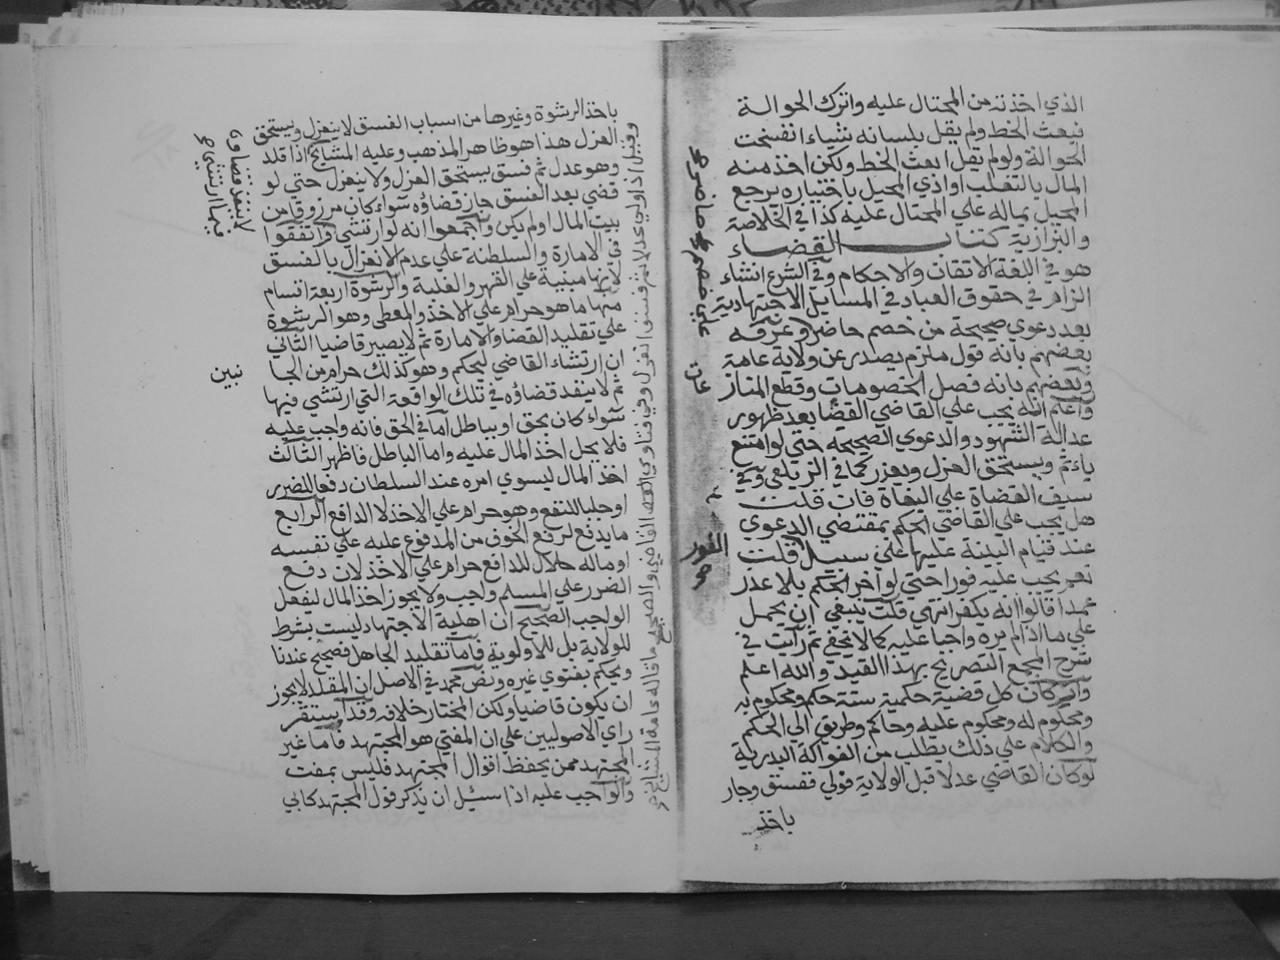 الذي اخذته من المحتال عليه واترك الحوالة
فبعث الخط ولم يقل بلسانه شياء انفسخت
الحوالة ولو لم يقل ابعث الخط ولكن اخذ منه
المال بالتغلب او اذي المحيل باختياره يرجع
المحيل بماله علي المحتال عليه كذا في الخلاصة
والبزازية كتاب القضاء
هو في اللغة الاتقان والاحكام وفي الشرع انشاء
الزام في حقوق العباد في المسايل الاجتهادية
بعد دعوي صحيحة من خصم حاضر وعرفه
بعضهم بانه قول ملزم يصدر عن ولاية عامة
وبعضهم بانه فصل الخصومات وقطع المناز
واعلم انه يجب علي القاضي القضا بعد ظهور
عدالة الشهود والدعوي الصحيحه حتي لو امتنع
ياءثم ويستحق العزل ويعزر كما في الزيلعي وفي
سيف القضاة علي البغاة فان قلت
هل يجب علي القاضي الحكم بمقتضي الدعوي
عند قيام البينة عليها علي سبيل قلت
نعم يجب عليه فورا حتي لو آخر الحكم بلا عذر
عمدا قالوا انه يكفر انتهي قلت ينبغي ان يحمل
علي ما اذا لم يره واجبا عليه كما لا يخفي ثم رايت في
شرح المجمع التصريح بهذا القيد والله اعلم
واركان كل قضية حكمية ستة حكم ومحكوم به
ومحكوم له ومحكوم عليه وحاكم وطريق الي الحكم
والكلام علي ذلك يطلب من الفواكة البدرية
لو كان القاضي عدلا قبل الولاية فولي ففسق وجار
ياخذ
علي خصم حاضر
الفور
باخذ الرشوة وغيرها من اسباب الفسق لا ينعزل ويستحق
العزل هذا هو ظاهر المذهب وعليه المشايخ اذا قلد
وهو عدل ثم فسق يستحق العزل ولا ينعزل حتي لو
قضي بعد الفسق جاز قضاؤه سواء كان مرزوقا من
بيت المال او لم يكن واجمعوا انه لو ارتشي واتفقوا
في الامارة والسلطنة علي عدم الانعزال بالفسق
لانها مبنية علي القهر والغلبة والرشوة اربعة اقسام
منها ما هو حرام علي الاخذ والمعطي وهو الرشوة
علي تقليد القضا والامارة ثم لا يصير قاضيا الثاني
ان ارتشاء القاضي ليحكم وهو كذلك حرام من الجا
ثم لا ينفد قضاؤه في تلك الواقعة التي ارتشي فيها
سواء كان بحق او بباطل اما في الحق فانه واجب عليه
فلا يحل اخذ المال عليه واما الباطل فاظهر الثالث
اخذ المال ليسوي امره عند السلطان دفعا للضرر
او جلبا للنفع وهو حرام علي الاخذ لا الدافع الرابع
ما يدفع لرفع الخوف من المدفوع عليه علي نفسه
او ماله حلال للدافع حرام علي الاخذ لان دفع
الضرر علي المسلم واجب ولا يجوز اخذ المال ليفعل
الواجب الصحيح ان اهلية الاجتهاد ليست بشرط
للولاية بل للاولوية فاما تقليد الجاهل فصحيح عندنا
ويحكم بفتوي غيره ونص محمد في الاصل ان المقلد لا يجوز
ان يكون قاضيا ولكن المختار خلافه وقد استقر
راي الاصوليين علي ان المفتي هو المجتهد فاما غير
المجتهد ممن يحفظ اقوال المجتهد فليس بمفت
والواجب عليه اذا سئل ان يذكر قول المجتهد كابي
لا ينفذ قضاؤه
فيما ارتشي
نبين